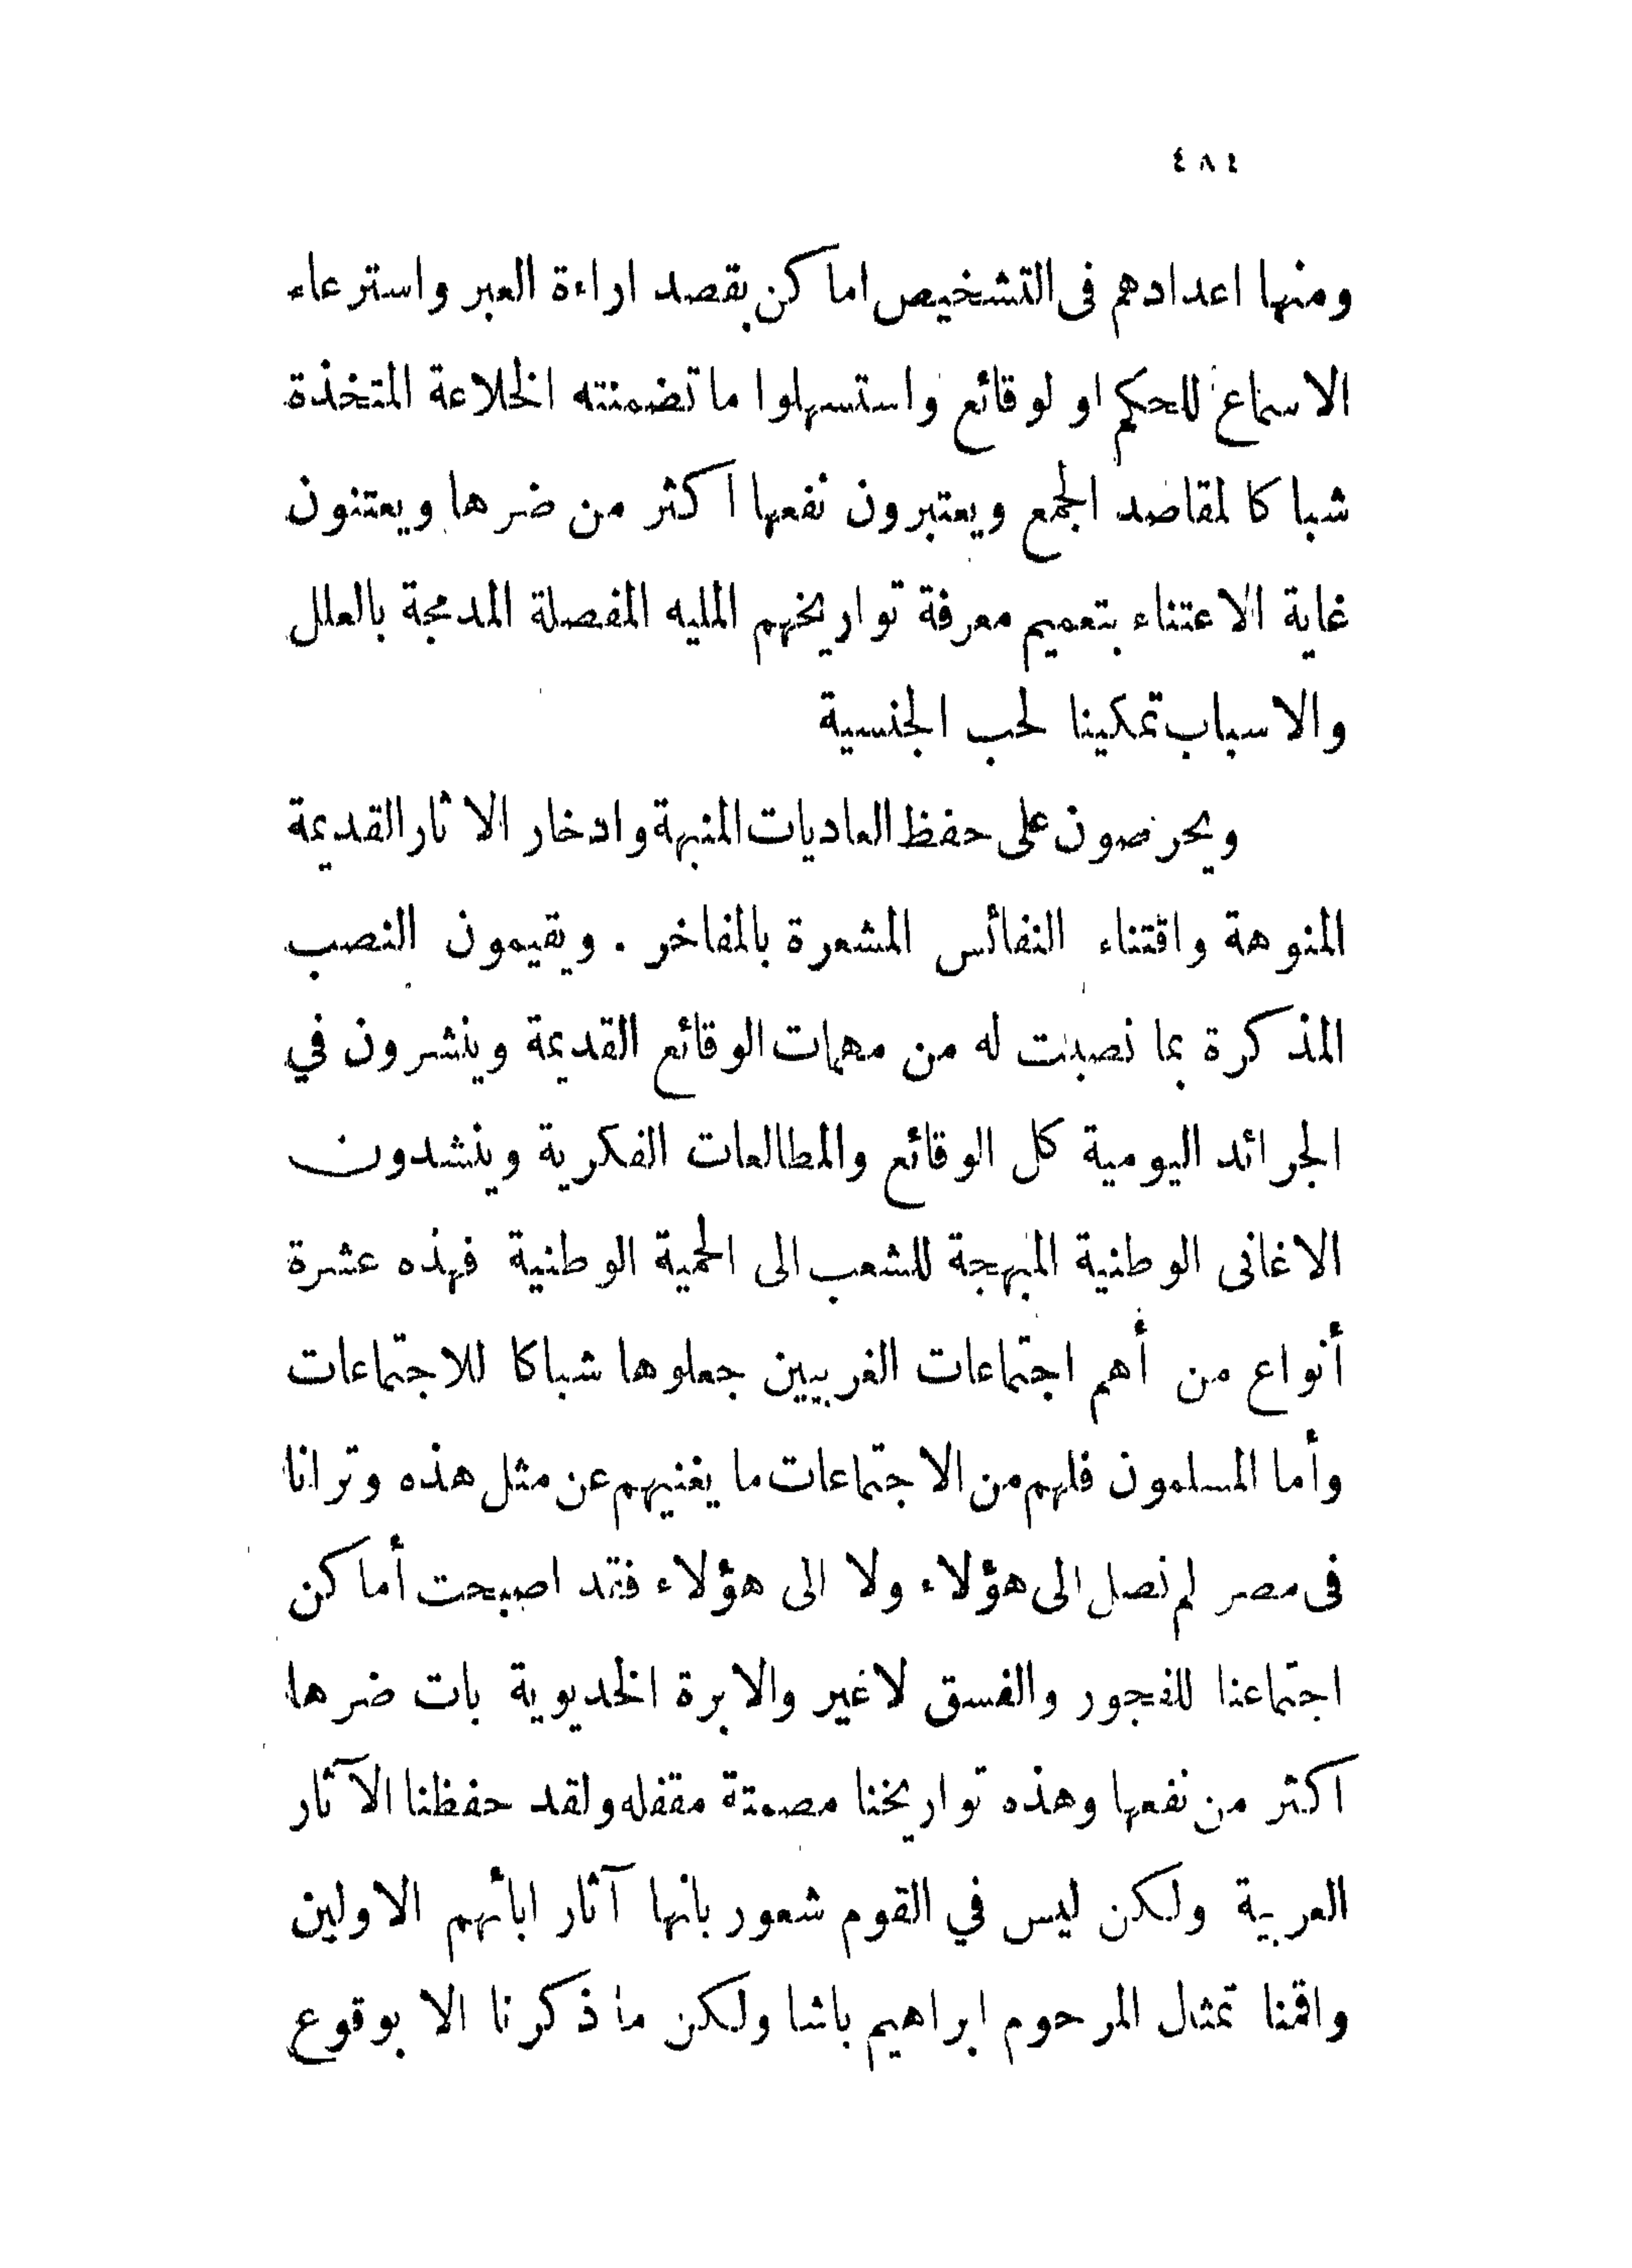 ٤٨٤
ومنها اعدادهم فى التشخيص اماكن بقصد اراءة العبر واسترعاء
الاسماع للحكم او لوقائع واستسهلوا ما تضمنته الخلاعة المتخذة
شباكا لمقاصد الجمع ويعتبرون نفعها اكثر من ضرها ويعتنون
غاية الاعتناء بتعميم معرفة تواريخهم المليه المفصلة المدمجة بالعلل
والاسباب تمكينا لحب الجنسية
ويحرصون على حفظ العاديات المنبهة وادخار الاثار القديمة
المنوهة واقتناء النفائس المشعرة بالمفاخر . ويقيمون النصب
المذكرة بما نصبت له من مهمات الوقائع القديمة وينشرون في
الجرائد اليومية كل الوقائع والمطالعات الفكرية وينشدون
الاغانى الوطنية المبهجة للشعب الى الحمية الوطنية فهذه عشرة
أنواع من أهم اجتماعات الغربيين جعلوها شباكا للاجتماعات
وأما المسلمون فلهم من الاجتماعات ما يغنيهم عن مثل هذه وترانا
فى مصر لم نصل الى هؤلاء ولا الى هؤلاء فقد اصبحت أماكن
اجتماعنا للفجور والفسق لاغير والابرة الخديوية بات ضرها
اكثر من نفعها وهذه تواريخنا مصمتة مقفله ولقد حفظنا الآثار
العربية ولكن ليس في القوم شعور بانها آثار ابائهم الاولين
واقمنا تمثل المرحوم ابراهيم باشا ولكن ما ذكرنا الا بوقوع